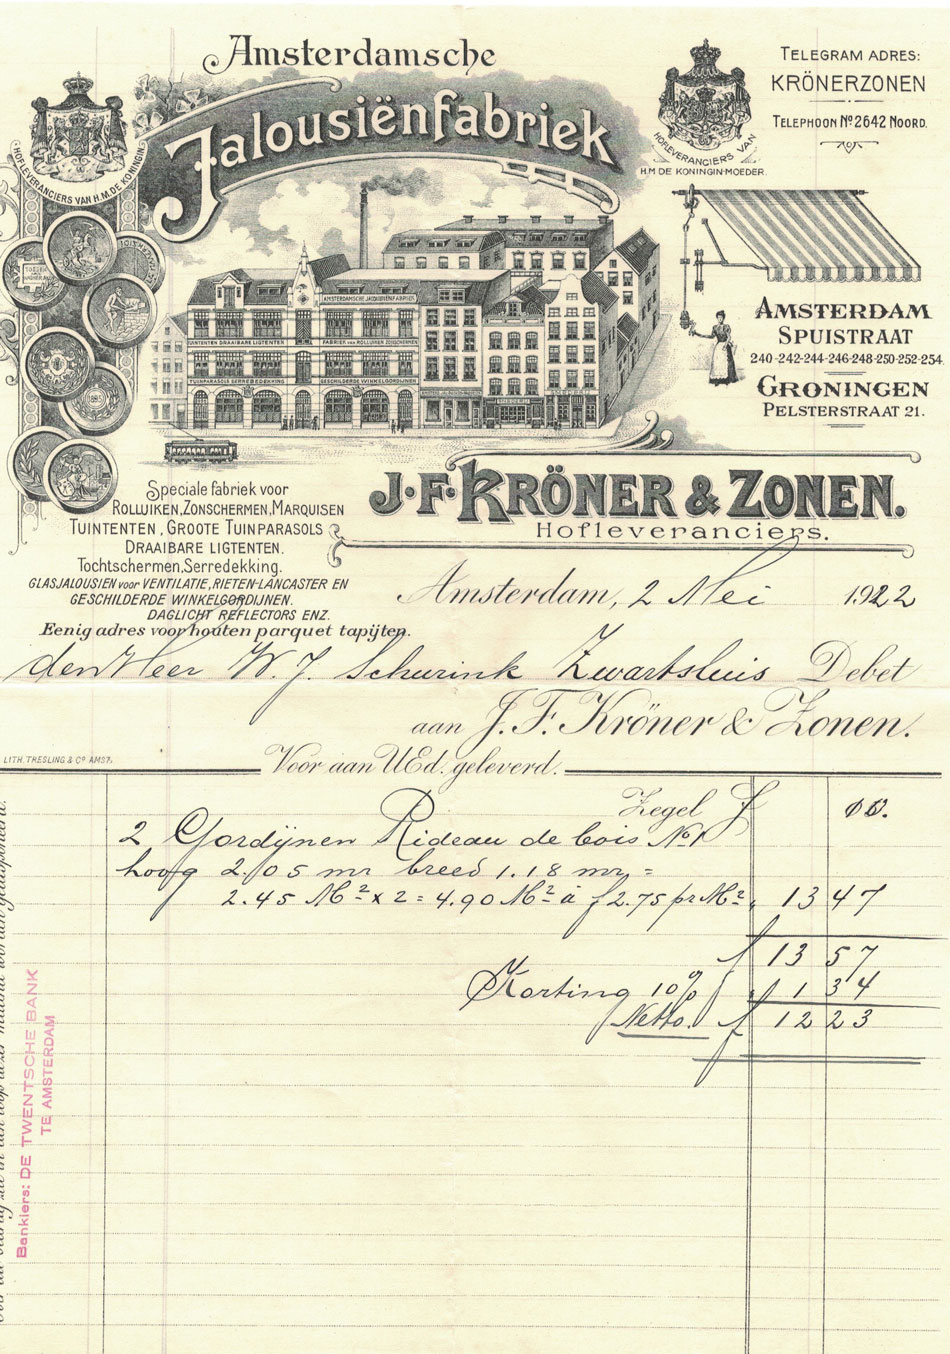 Amsterdamsche
Jalousiënfabriek
HOFLEVERANCIERS VAN H.M. DE KONINGIN
HOFLEVERANCIERS VAN
H.M DE KONINGIN-MOEDER.
TELEGRAM ADRES:
KRÖNERZONEN
TELEPHOON No 2642 NOORD.
AMSTERDAMSCHE JALOUSIENFABRIEK
TUINTENTEN DRAAIBARE LIGTENTEN
FABRIEK VAN ROLLUIKEN ZONSCHERMEN
TUINPARASOLS SERREBEDEKKING
GESCHILDERDE WINKELGORDIJNEN
AMSTERDAM
SPUISTRAAT
240-242-244-246-248-250-252-254
GRONINGEN
PELSTERSTRAAT 21.
J.F. KRÖNER & ZONEN.
Hofleveranciers.
Speciale fabriek voor
ROLLUIKEN, ZONSCHERMEN, MARQUISEN
TUINTENTEN, GROOTE TUINPARASOLS
DRAAIBARE LIGTENTEN.
Tochtschermen, Serredekking.
GLASJALOUSIEN voor VENTILATIE, RIETEN-LANCASTER EN
GESCHILDERDE WINKELGORDIJNEN.
DAGLICHT REFLECTORS ENZ.
Eenig adres voor houten parquet tapijten.
Amsterdam, 2 Mei 1922
den Heer W. J. Schurink Zwartsluis Debet
aan J. F. Kröner & Zonen.
LITH. TRESLING & Co AMST.
Voor aan UEd. geleverd.
Zegel f 00.
2 Gordijnen Rideau de bois No 1
hoog 2.05 mr breed 1.18 mr =
2.45 M² x 2 = 4.90 M² à f 2.75 pr M² 13 47
f 13 57
Korting 10% f 1 34
Netto. f 12 23
Bankiers: DE TWENTSCHE BANK
TE AMSTERDAM